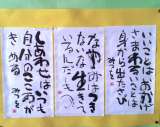 いいことはおかげ
さまわるいことは
身から出たさび
みつを
なやみはつき
ねんだなあ
生きて
いるんだもの
みつを
しあわせはいつも
自分のこころが
きめる
みつを